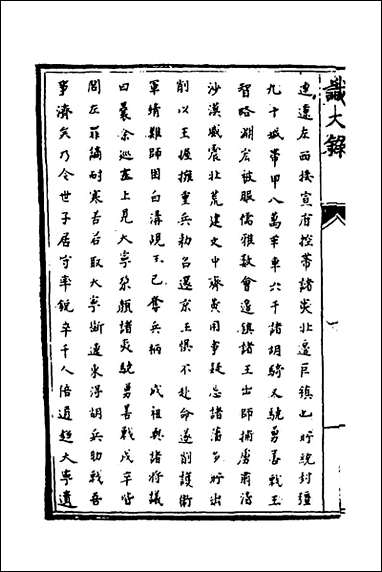 識大錄
連遼左西接宣府控帶諸夷北邊巨鎮也所統封疆
九十城帶甲八萬革車六千諸胡騎尤驍勇善戰王
智略淵宏被服儒雅數會邊鎮諸王出師捕虜肅清
沙漠威震北荒建文中齊黃用事疑忌諸藩多所出
削以王握擁重兵勅召還京王懼不赴命遂削護衛
軍靖難師困白溝覘王已奪兵柄 成祖與諸將議
曰曩余巡塞上見大寧朵顏諸夷驍勇善戰戍卒皆
閭左罪謫耐寒苦若取大寧斷遼東得胡兵助戰吾
事濟矣乃令世子居守率銳卒千人倍道趨大寧遺